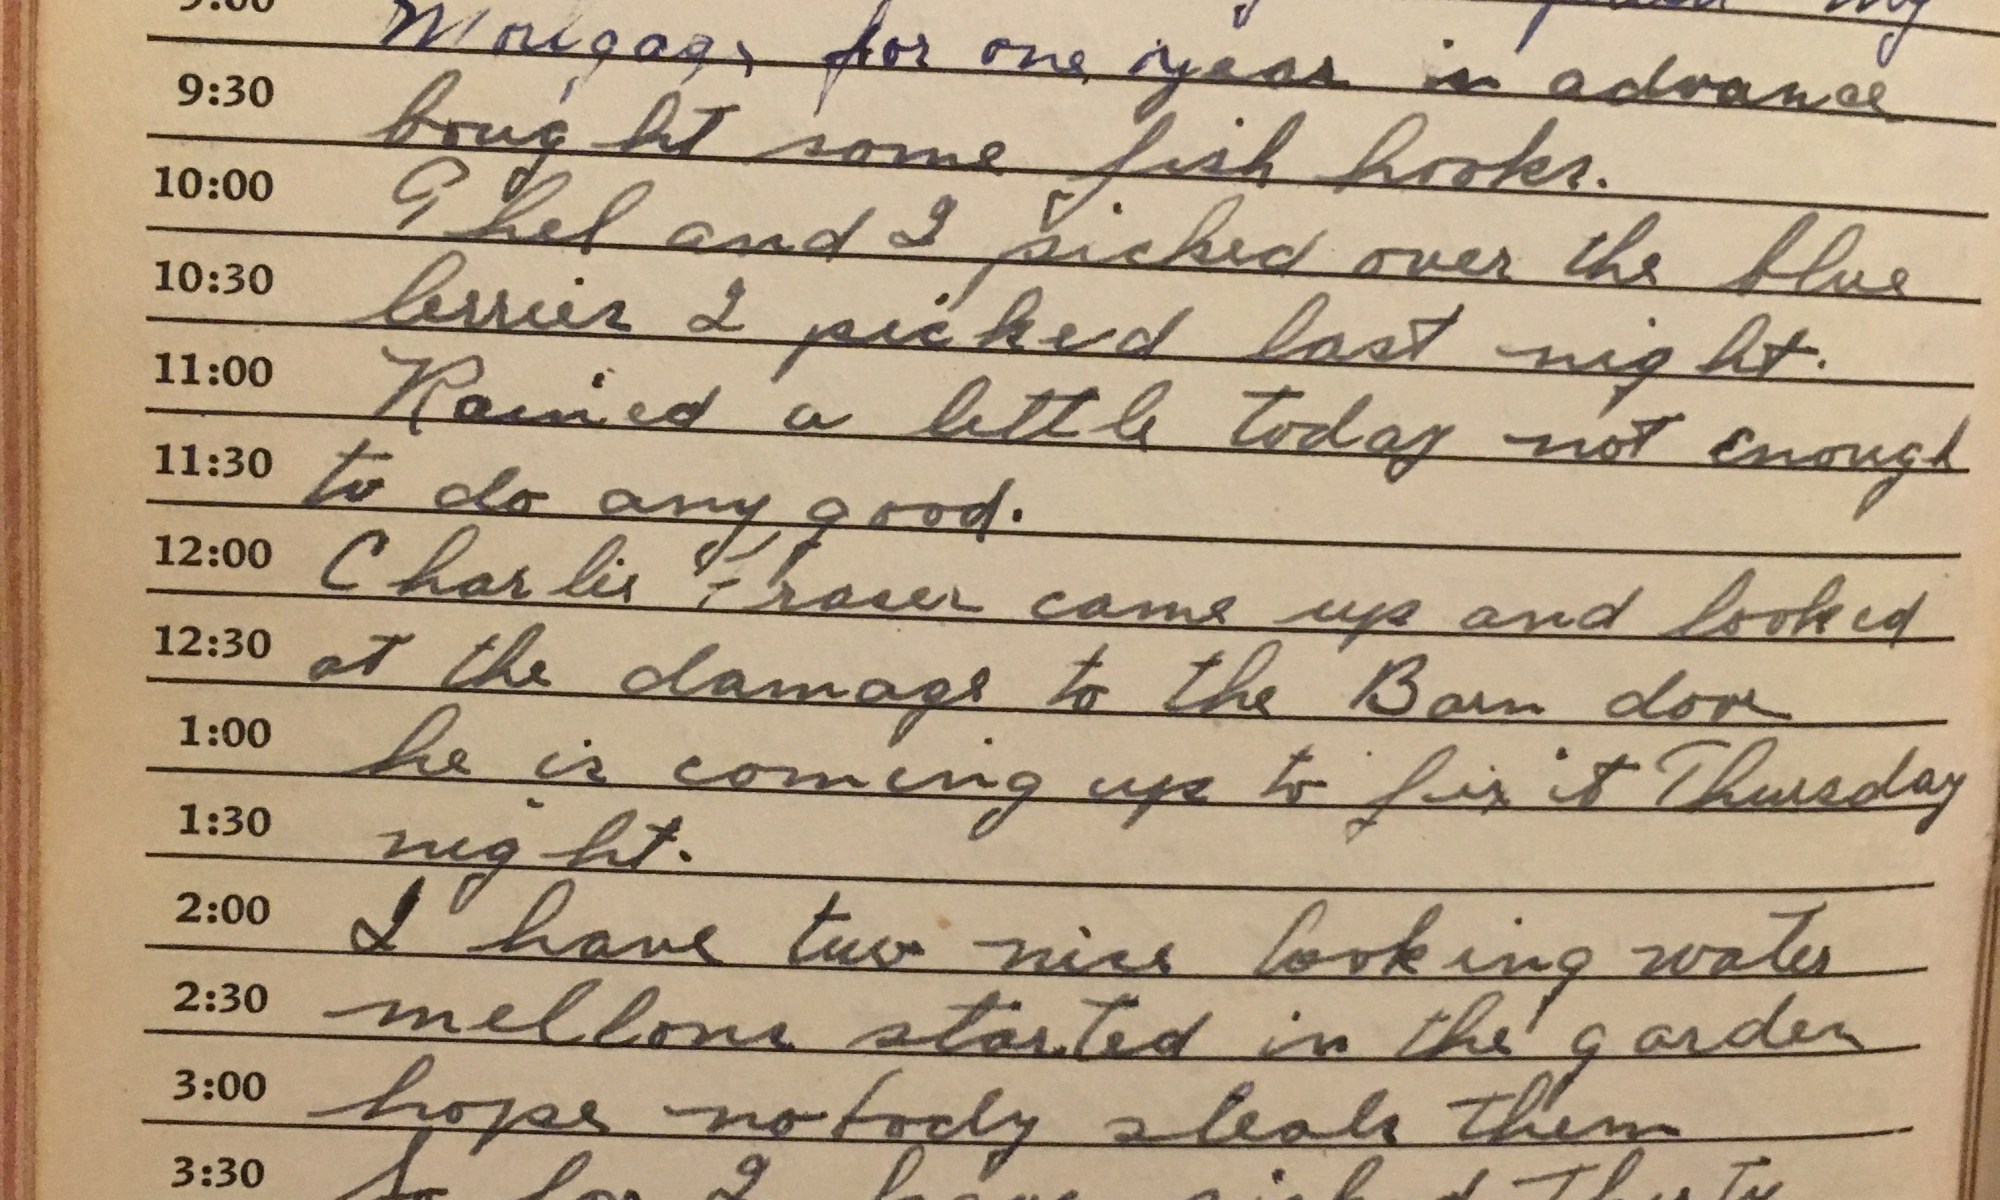 9:00 my
Mortgage for one year in advance
9:30 bought some fish hooks.
10:00 Thel and I picked over the blue
10:30 berries I picked last night.
11:00 Rained a little today not enough
11:30 to do any good.
12:00 Charlie Fraser came up and looked
12:30 at the damage to the Barn door
1:00 he is coming up to fix it Thursday
1:30 night.
2:00 I have two nice looking water
2:30 mellons started in the garden
3:00 hope nobody steals them
3:30 So far I have picked thirty